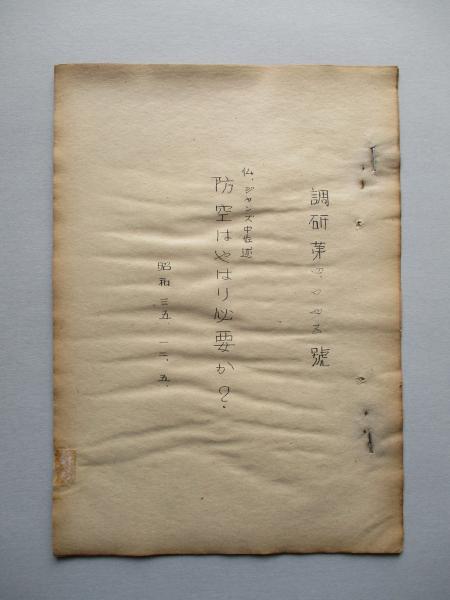 調研第四〇四五號
仏、ジャンズ中佐述
防空はやはり必要か?
昭和三五、一二、五、